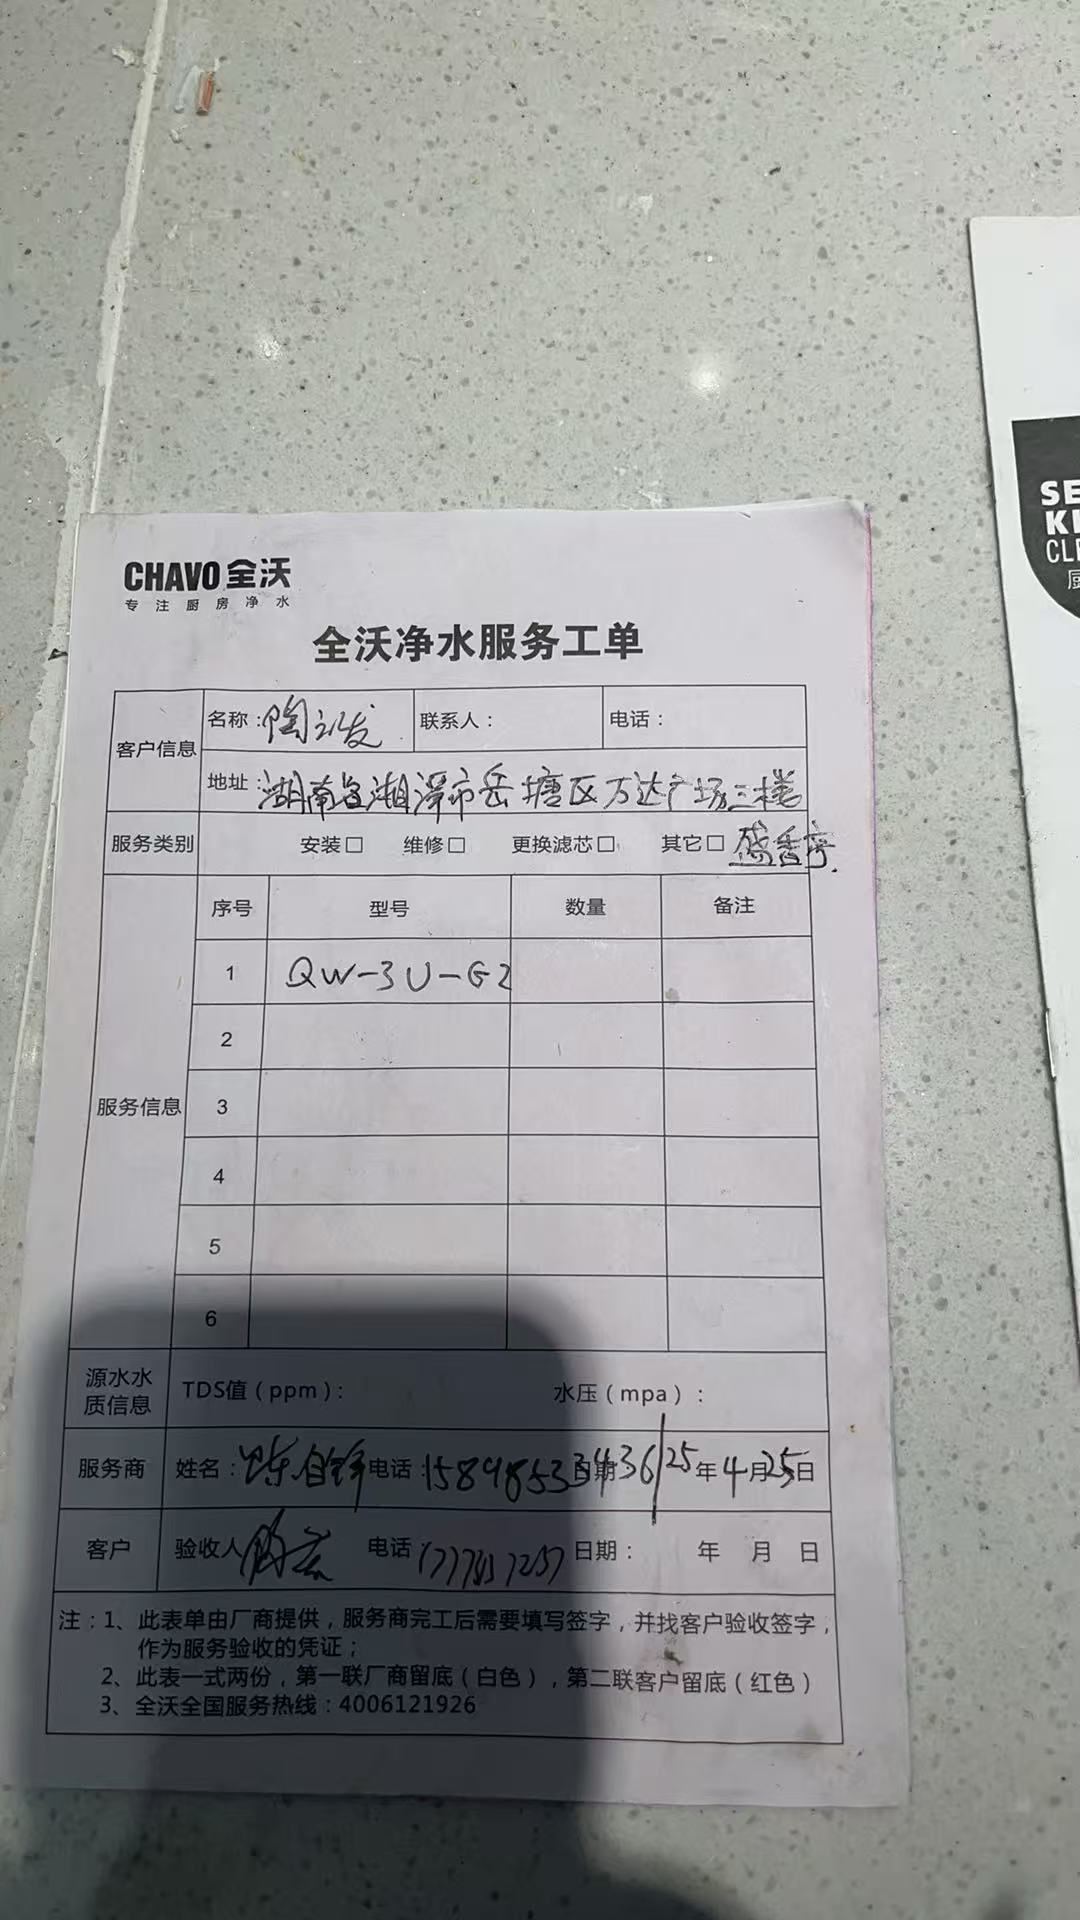 CHAVO 全沃
专注厨房净水
全沃净水服务工单
客户信息
名称：陶 发 联系人： 电话：
地址：湖南省湘潭市岳塘区万达广场三楼
服务类别 安装□ 维修□ 更换滤芯□ 其它□ 盛香亭
服务信息
序号 型号 数量 备注
1 QW-3U-G2
2
3
4
5
6
源水水质信息 TDS值（ppm）： 水压（mpa）：
服务商 姓名： 电话：15898533436 日期 25年4月25日
客户 验收人 电话 日期： 年 月 日
注：1、此表单由厂商提供，服务商完工后需要填写签字，并找客户验收签字，
作为服务验收的凭证；
2、此表一式两份，第一联厂商留底（白色），第二联客户留底（红色）
3、全沃全国服务热线：4006121926
SE
KI
CLE